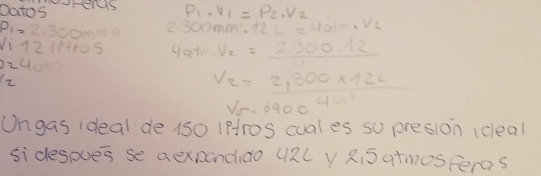 Datos
P1 = 2.300mm
Vi 12 litros
P1.V1 = P2.V2
2.300mm.12 L = 4atm.V2
4atm.V2 = 2.300.12
V2 = 2,300 x 12L
V5 - 6900
Un gas ideal de 150 litros cual es su presión ideal
si después se a expandido 42L y 2,5 atmosferas